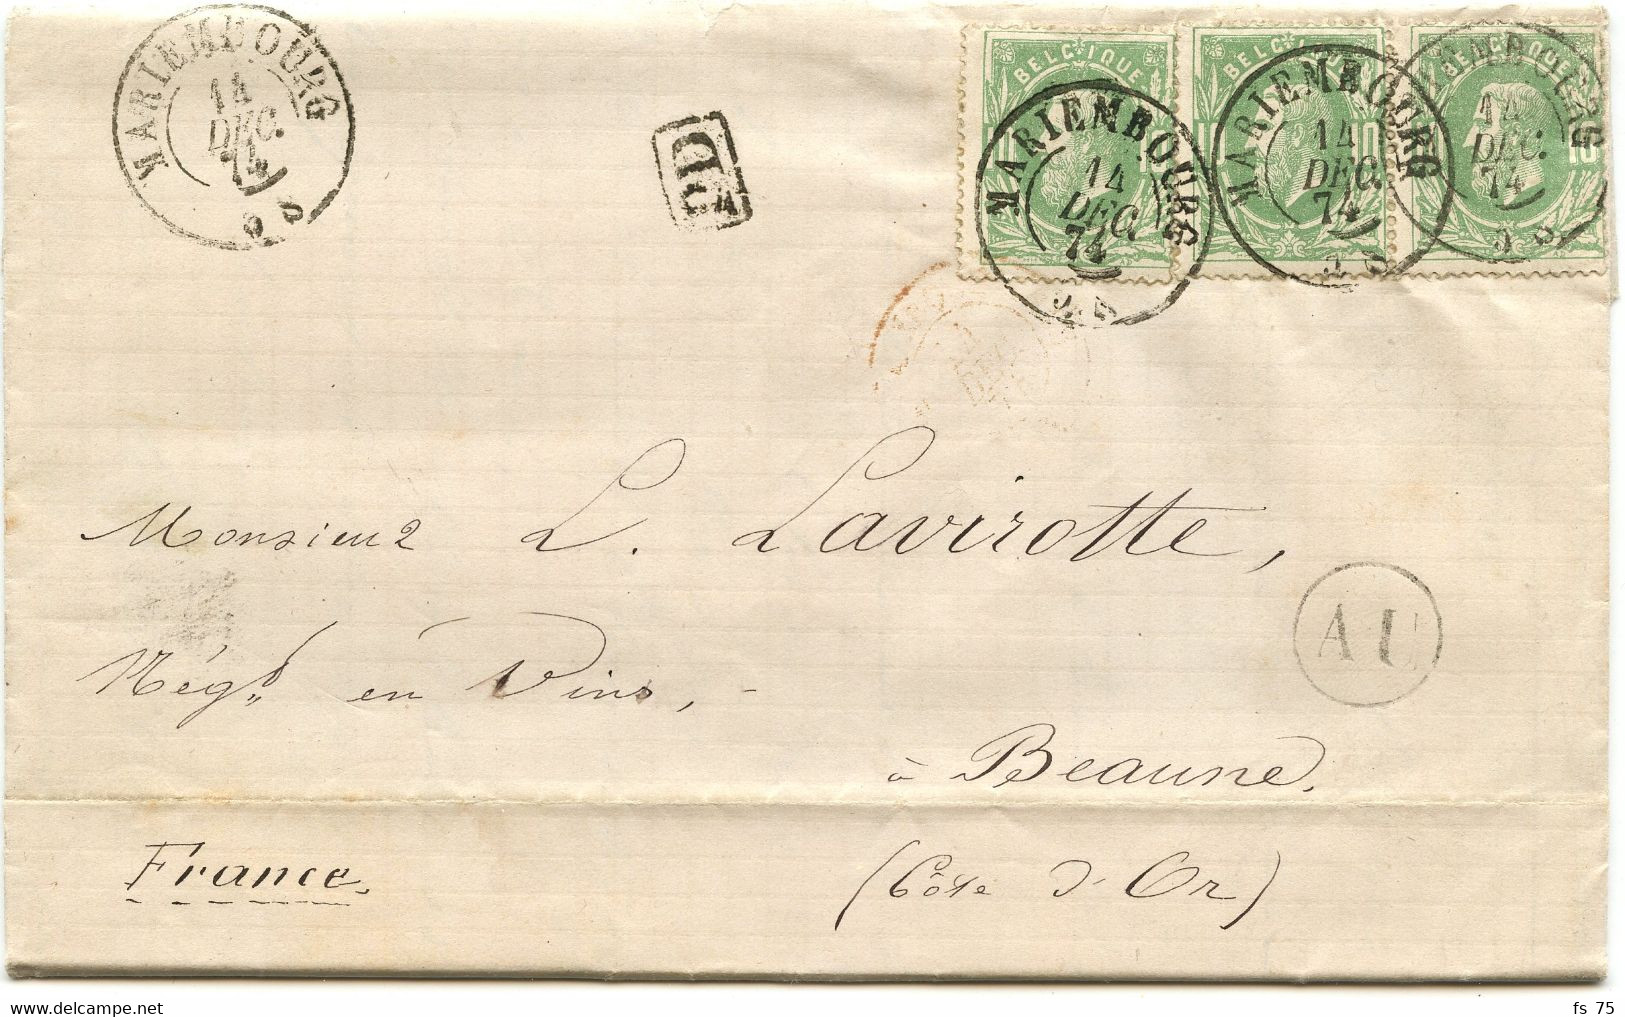 MARIEMBOURG
14
DEC.
74
5 S
PD
BELGIQUE
10
MARIEMBOURG
14
DEC.
74
BELGIQUE
10 10
MARIEMBOURG
14
DEC.
74
BELGIQUE
10
14
DEC.
74
Monsieur L. Lavirotte,
Négt en Vins, -
à Beaune.
(Côte d'Or)
France.
AU
delcampe.net
fs_75